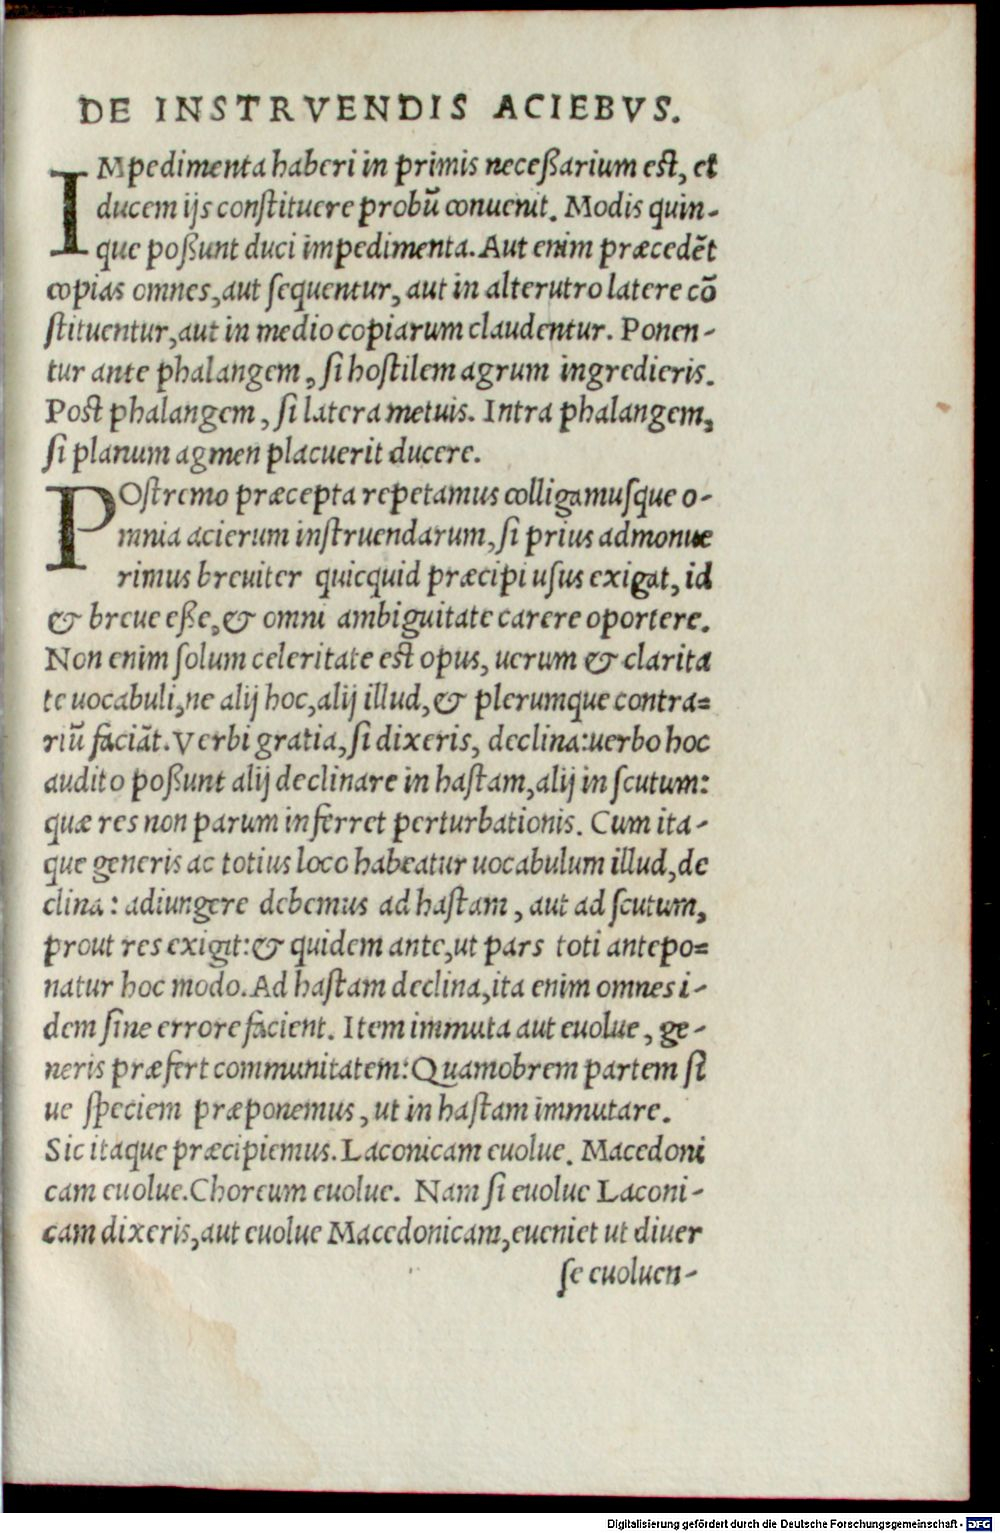 DE INSTRVENDIS ACIEBVS.
IMpedimenta haberi in primis neceßarium est, et
ducem ijs conſtituere probū conuenit. Modis quin-
que poßunt duci impedimenta. Aut enim præcedēt
copias omnes, aut ſequentur, aut in alterutro latere cō
ſtituentur, aut in medio copiarum claudentur. Ponen-
tur ante phalangem, ſi hoſtilem agrum ingredieris.
Post phalangem, ſi latera metuis. Intra phalangem,
ſi planum agmen placuerit ducere.
POſtremo præcepta repetamus colligamuſque o-
mnia acierum inſtruendarum, ſi prius admonue
rimus breuiter quicquid præcipi uſus exigat, id
& breue eße, & omni ambiguitate carere oportere.
Non enim ſolum celeritate est opus, uerum & clarita
te uocabuli, ne alij hoc, alij illud, & plerumque contra=
riū faciāt. Verbi gratia, ſi dixeris, declina: uerbo hoc
audito poßunt alij declinare in haſtam, alij in ſcutum:
quæ res non parum inferret perturbationis. Cum ita-
que generis ac totius loco habeatur uocabulum illud, de
clina: adiungere debemus ad haſtam, aut ad ſcutum,
prout res exigit: & quidem ante, ut pars toti antepo=
natur hoc modo. Ad haſtam declina, ita enim omnes i-
dem ſine errore facient. Item immuta aut euolue, ge-
neris præfert communitatem: Quamobrem partem ſi
ue ſpeciem præponemus, ut in haſtam immutare.
Sic itaque præcipiemus. Laconicam euolue. Macedoni
cam euolue. Choreum euolue. Nam ſi euolue Laconi-
cam dixeris, aut euolue Macedonicam, eueniet ut diuer
ſe euoluen-
Digitalisierung gefördert durch die Deutsche Forschungsgemeinschaft - DFG